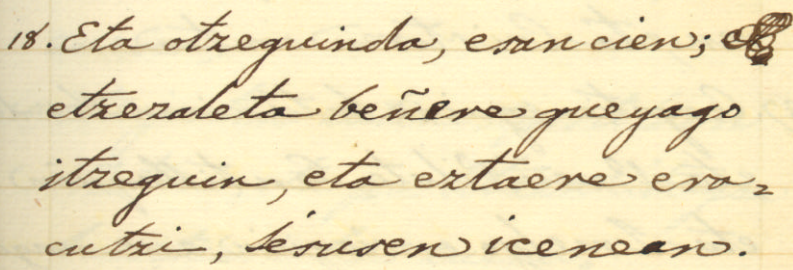 18. Eta otzeguinda, esan cien;
etzezaleta beñere gueyago
itzeguin, eta eztaere era=
cutzi, Jésusen icenean.